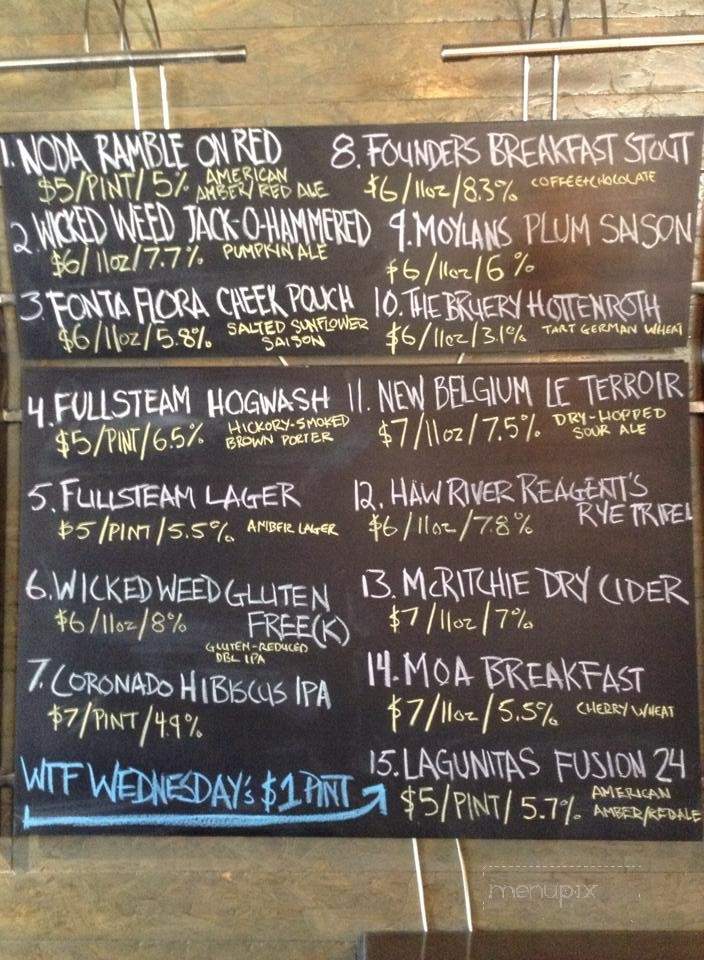 1. NODA RAMBLE ON RED
$5/PINT/5% AMERICAN
AMBER/RED ALE
2. WICKED WEED JACK-O-HAMMERED
$6/11oz/7.7% PUMPKIN ALE
3. FONTA FLORA CHEEK POUCH
$6/11oz/5.8% SALTED SUNFLOWER
SAISON
4. FULLSTEAM HOGWASH
$5/PINT/6.5% HICKORY-SMOKED
BROWN PORTER
5. FULLSTEAM LAGER
$5/PINT/5.5% AMBER LAGER
6. WICKED WEED GLUTEN
FREE(K)
$6/11oz/8%
GLUTEN-REDUCED
DBL IPA
7. CORONADO HIBISCUS IPA
$7/PINT/4.9%
WTF WEDNESDAY's $1 PINT
8. FOUNDERS BREAKFAST STOUT
$6/11oz/8.3% COFFEE+CHOCOLATE
9. MOYLANS PLUM SAISON
$6/11oz/6%
10. THE BRUERY HOTTENROTH
$6/11oz/3.1% TART GERMAN WHEAT
11. NEW BELGIUM LE TERROIR
$7/11oz/7.5% DRY-HOPPED
SOUR ALE
12. HAW RIVER REAGENT'S
RYE TRIPEL
$6/11oz/7.8%
13. McRITCHIE DRY CIDER
$7/11oz/7%
14. MOA BREAKFAST
$7/11oz/5.5% CHERRY WHEAT
15. LAGUNITAS FUSION 24
$5/PINT/5.7% AMERICAN
AMBER/RED ALE
menupix